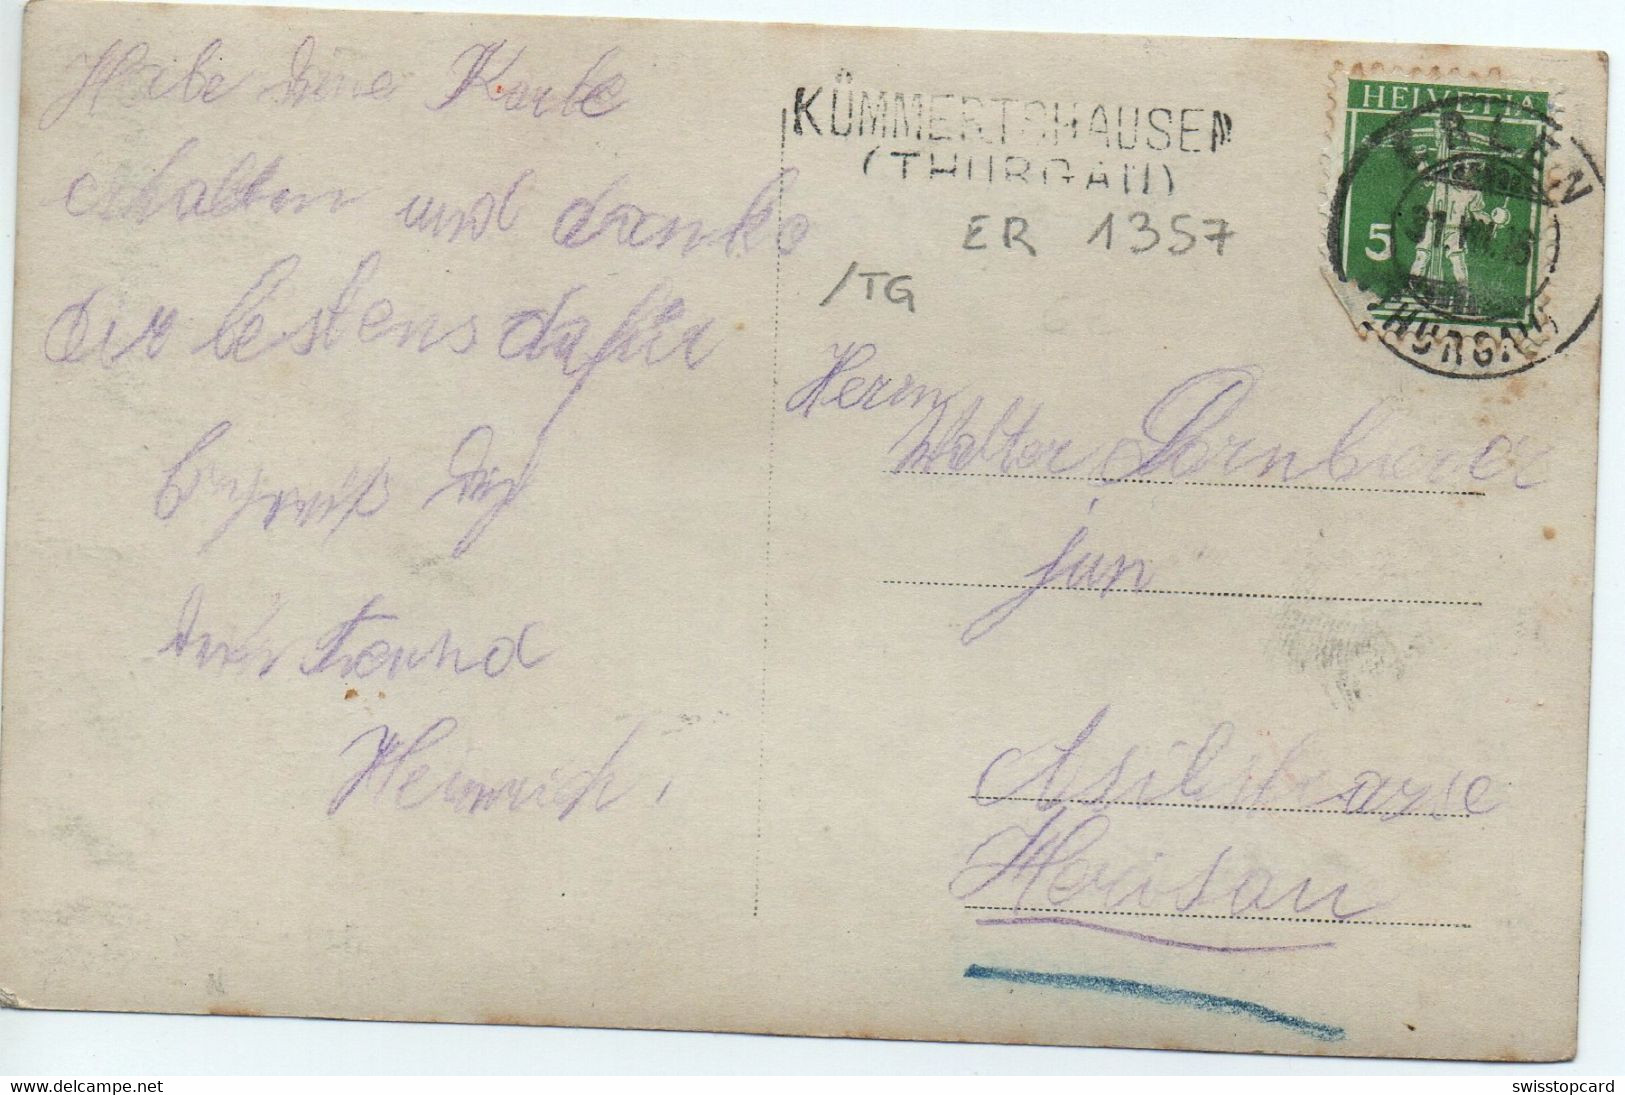 Habe deine Karte
erhalten und danke
dir bestens dafür
Dich
dein Freund
Heinrich.
KÜMMERTSHAUSEN
(THURGAU)
ER 1357
/TG
HELVETIA
5
ERLEN
THURGAU
Herrn
Walter
jun
Herisau
delcampe.net
swisstopcard